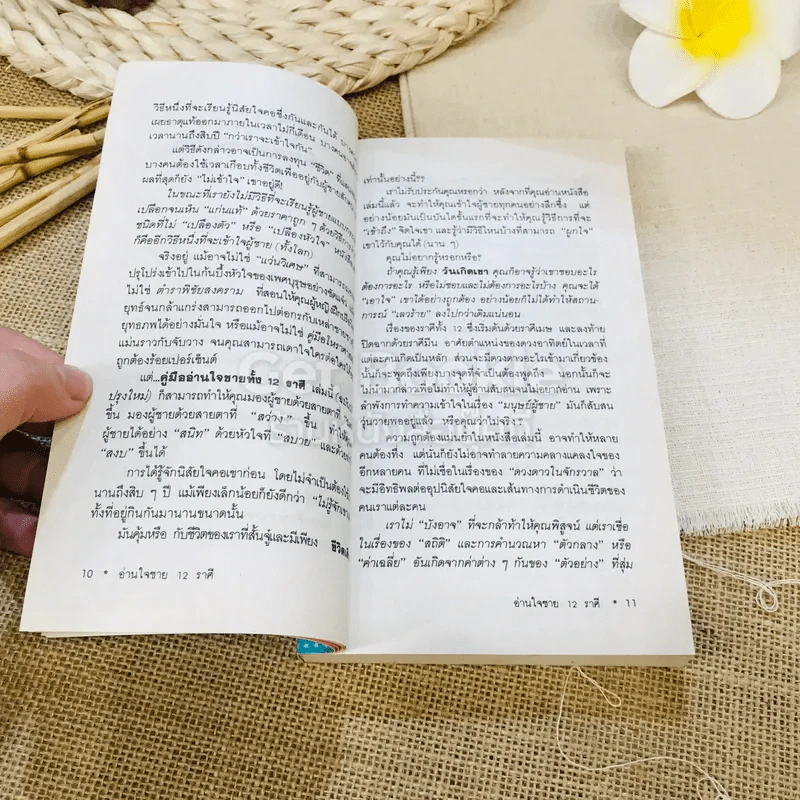 วิธีหนึ่งที่จะเรียนรู้นิสัยใจคอซึ่งกันและกันได้
เผยธาตุแท้ออกมาภายในเวลาไม่กี่เดือน บางคน
เวลานานถึงสิบปี “กว่าเราจะเข้าใจกัน”
แต่วิธีดังกล่าวอาจเป็นการลงทุน “ชีวิต”
บางคนต้องใช้เวลาเกือบทั้งชีวิตเพื่ออยู่กับผู้ชาย
ผลที่สุดก็ยัง “ไม่เข้าใจ” เขาอยู่ดี!
ในขณะที่เรายังไม่มีวิธีที่จะเรียนรู้ผู้ชายแบบ
เปลือกจนเห็น “แก่นแท้” ด้วยราคาถูก ๆ ด้วยวิธีการ
ชนิดที่ไม่ “เปลืองตัว” หรือ “เปลืองหัวใจ”
ก็คืออีกวิธีหนึ่งที่จะเข้าใจผู้ชาย (ทั้งโลก)
จริงอยู่ แม้อาจไม่ใช่ “แว่นวิเศษ” ที่สามารถ
ปรุโปร่งเข้าไปในก้นบึ้งหัวใจของเพศบุรุษอย่างชัดแจ้ว
ไม่ใช่ ตำราพิชัยสงคราม ที่สอนให้คุณผู้หญิง
ยุทธ์จนกล้าแกร่งสามารถออกไปต่อกรกับเหล่าชาย
ยุทธภพได้อย่างมั่นใจ หรือแม้อาจไม่ใช่ คู่มือโหราศาสตร์
แม่นราวกับจับวาง จนคุณสามารถเดาใจใครต่อใครได้
ถูกต้องร้อยเปอร์เซ็นต์
แต่...คู่มืออ่านใจชายทั้ง 12 ราศี เล่มนี้
ปรุงใหม่) ก็สามารถทำให้คุณมองผู้ชายด้วยสายตาที่
ขึ้น มองผู้ชายด้วยสายตาที่ “สว่าง” ขึ้น ทำให้
ผู้ชายได้อย่าง “สนิท” ด้วยหัวใจที่ “สบาย” และด้วย
“สงบ” ขึ้นได้
การได้รู้จักนิสัยใจคอเขาก่อน โดยไม่จำเป็นต้อง
นานถึงสิบ ๆ ปี แม้เพียงเล็กน้อยก็ยังดีกว่า “ไม่รู้จัก
ทั้งที่อยู่กินกันมานานขนาดนั้น
มันคุ้มหรือ กับชีวิตของเราที่สั้นจู๋และมีเพียง
10 * อ่านใจชาย 12 ราศี
เท่านั้นอย่างนี้??
เราไม่รับประกันคุณหรอกว่า หลังจากที่คุณอ่านหนังสือ
เล่มนี้แล้ว จะทำให้เข้าใจผู้ชายทุกคนอย่างลึกซึ้ง แต่
อย่างน้อยมันเป็นบันไดขั้นแรกที่จะทำให้คุณรู้วิธีการที่จะ
“เข้าถึง” จิตใจเขา และรู้ว่ามีวิธีไหนบ้างที่สามารถ “ผูกใจ”
เขาไว้กับคุณได้ (นาน ๆ)
คุณไม่อยากรู้หรอกหรือ?
ถ้าคุณรู้เพียง วันเกิดเขา คุณก็อาจรู้ว่าเขาชอบอะไร
ต้องการอะไร หรือไม่ชอบและไม่ต้องการอะไรบ้าง คุณจะได้
“เอาใจ” เขาได้อย่างถูกต้อง อย่างน้อยก็ไม่ได้ทำให้สถาน-
การณ์ “เลวร้าย” ลงไปกว่าเดิมแน่นอน
เรื่องของราศีทั้ง 12 ซึ่งเริ่มต้นด้วยราศีเมษ และลงท้าย
ปิดฉากด้วยราศีมีน อาศัยตำแหน่งของดวงอาทิตย์ในเวลาที่
แต่ละคนเกิดเป็นหลัก ส่วนจะมีดวงดาวอะไรเข้ามาเกี่ยวข้อง
นั้นก็จะพูดถึงเพียงบางจุดที่จำเป็นต้องพูดถึง นอกนั้นก็จะ
ไม่นำมากล่าวเพื่อไม่ทำให้ผู้อ่านสับสนจนไม่อยากอ่าน เพราะ
ลำพังการทำความเข้าใจในเรื่อง “มนุษย์ผู้ชาย” มันก็สับสน
วุ่นวายพออยู่แล้ว หรือคุณว่าไม่จริง?
ความถูกต้องแม่นยำในหนังสือเล่มนี้ อาจทำให้หลาย
คนต้องทึ่ง แต่นั่นก็ยังไม่อาจทำลายความคลางแคลงใจของ
อีกหลายคน ที่ไม่เชื่อในเรื่องของ “ดวงดาวในจักรวาล” ว่า
จะมีอิทธิพลต่ออุปนิสัยใจคอและเส้นทางการดำเนินชีวิตของ
คนเราแต่ละคน
เราไม่ “บังอาจ” ที่จะกล้าท้าให้คุณพิสูจน์ แต่เราเชื่อ
ในเรื่องของ “สถิติ” และการคำนวณหา “ตัวกลาง” หรือ
“ค่าเฉลี่ย” อันเกิดจากค่าต่าง ๆ กันของ “ตัวอย่าง” ที่สุ่ม
อ่านใจชาย 12 ราศี * 11